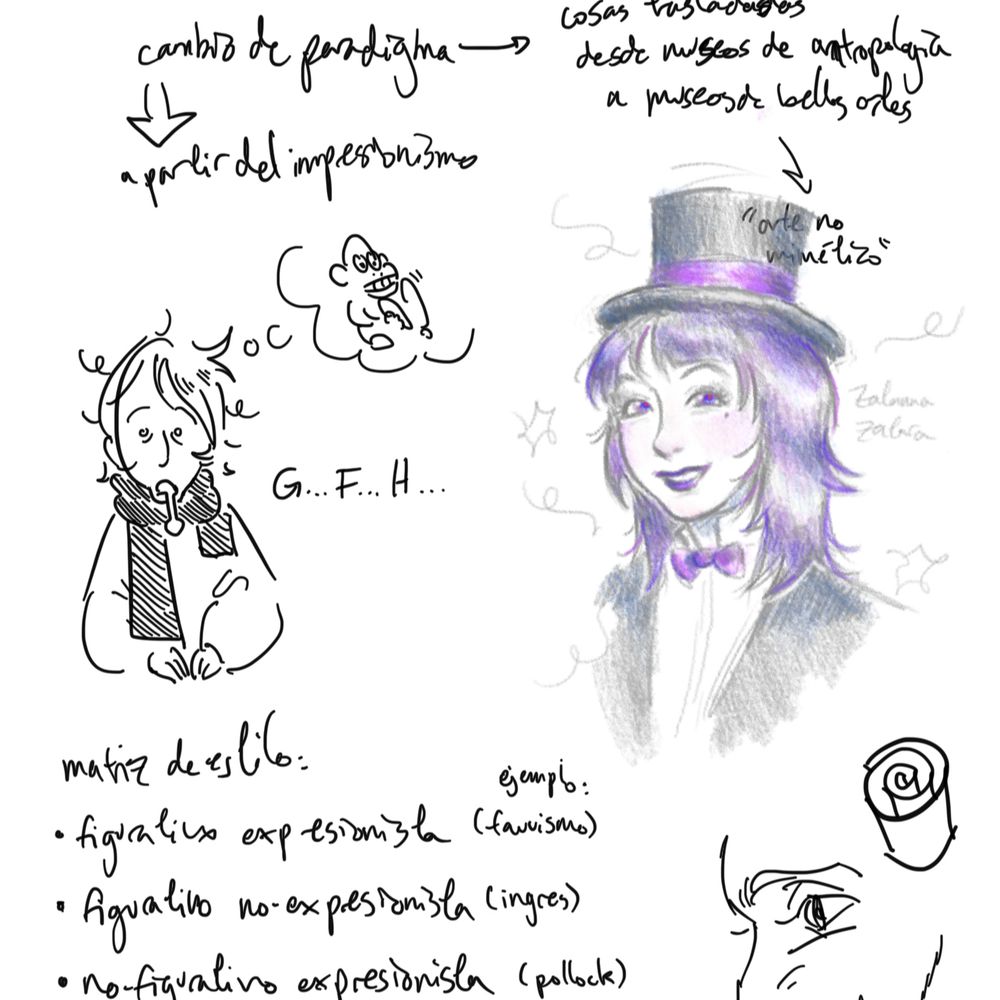 cambio de paradigma
cosas trasladadas
desde museos de antropología
a museos de bellas artes
a partir del impresionismo
"arte no
mimético"
G... F... H...
matriz de estilo:
ejemplo:
• figurativo expresionista (fauvismo)
• figurativo no-expresionista (ingres)
• no-figurativo expresionista (pollock)